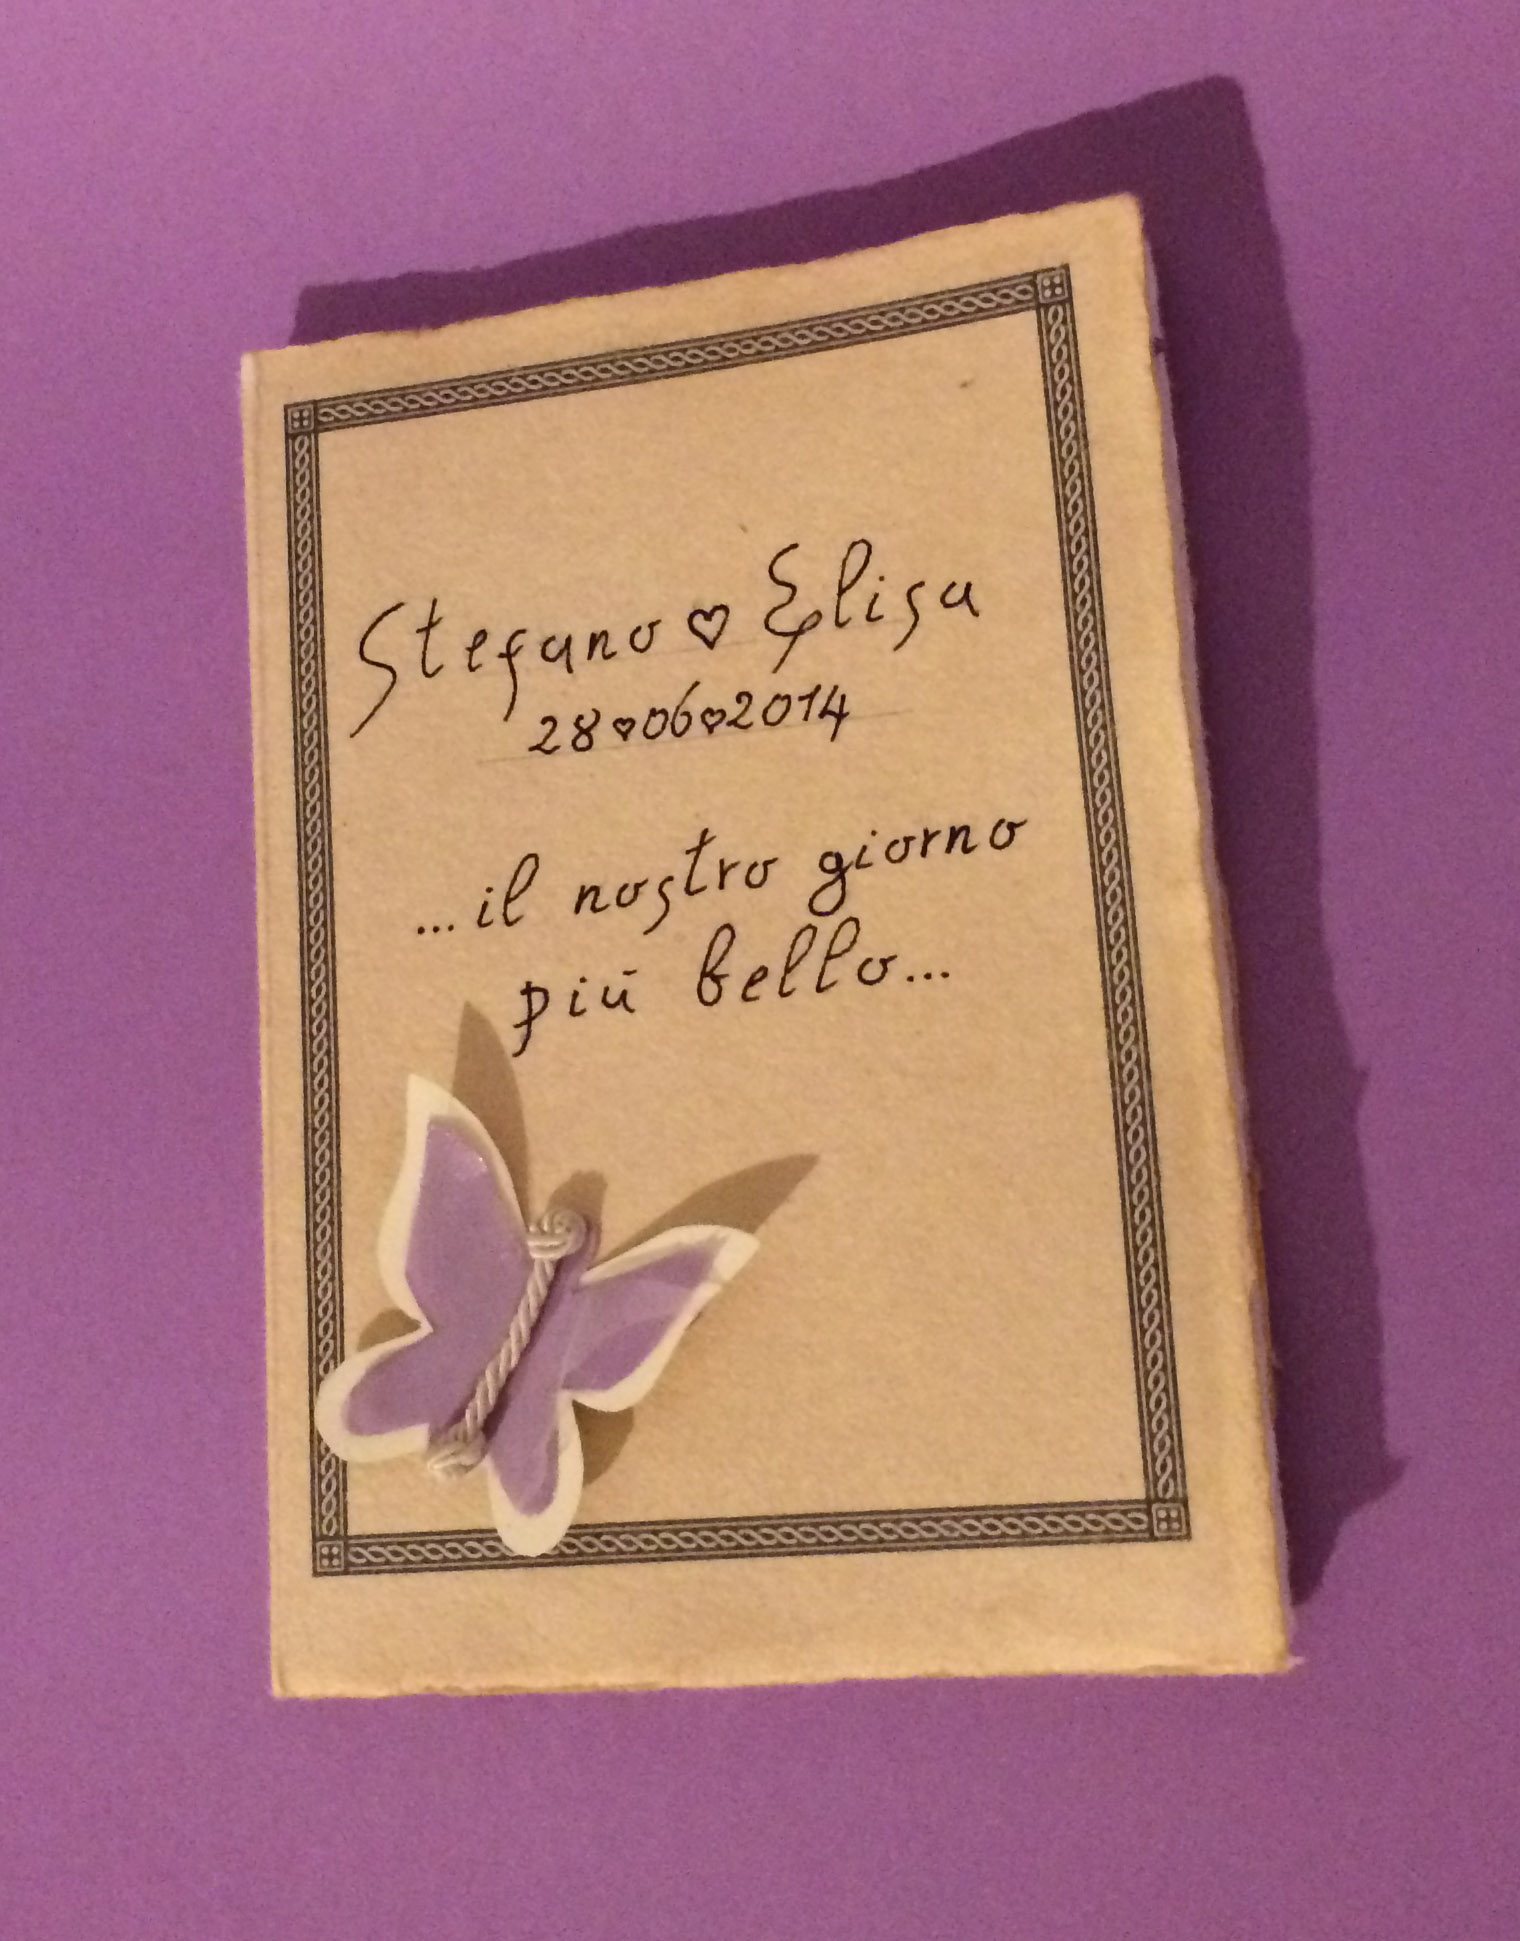 Stefano ♡ Elisa
28♡06♡2014
...il nostro giorno
più bello...